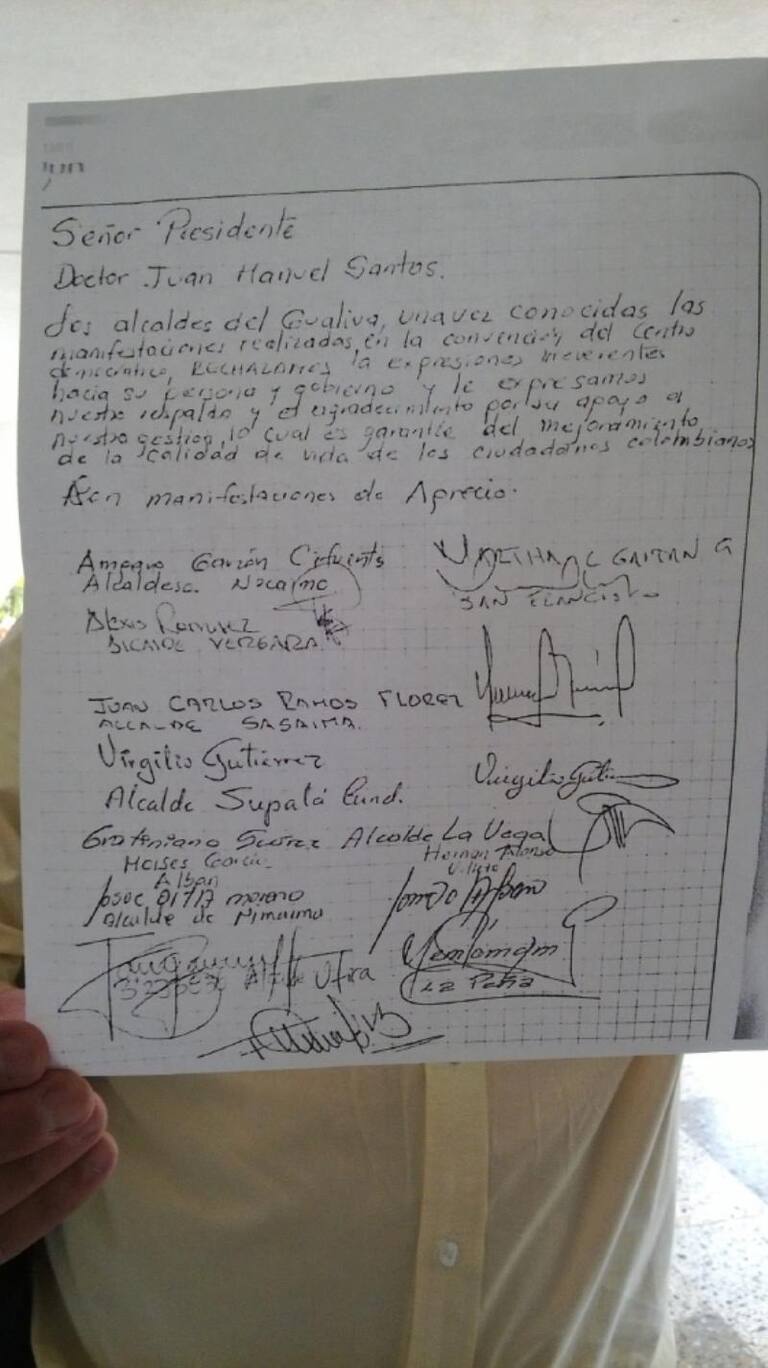 Señor Presidente
Doctor Juan Manuel Santos.
Los alcaldes del Gualiva, una vez conocidas las
manifestaciones realizadas, en la convención del Centro
democratico, RECHAZAMOS la expresiones irreverentes
hacia su persona y gobierno y le expresamos
nuestro respaldo y el agradecimiento por su apoyo a
nuestra gestion, lo cual es garantia del mejoramiento
de la calidad de vida de los ciudadanos colombianos
Con manifestaciones de Aprecio.
Amparo Garzón Cifuentes MARTHA C GAITAN G
Alcaldesa. Nocaima SAN FRANCISCO
Alexis Ramirez
ALCALDE VERGARA
JUAN CARLOS RAMOS FLOREZ
ALCALDE SASAIMA.
Virgilio Gutierrez Virgilio Guti
Alcalde Supatá Cund.
Gratiniano Suárez Alcalde La Vega
Moises Hernan Alonso
Alban
Moreno
Alcalde de Nimaima
Utica
La Peña